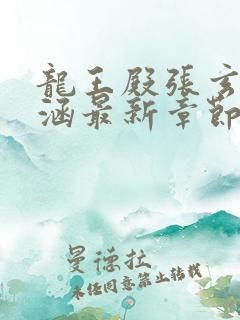 龍王殿張玄
涵最新章節
曼德拉
未經同意禁止轉載